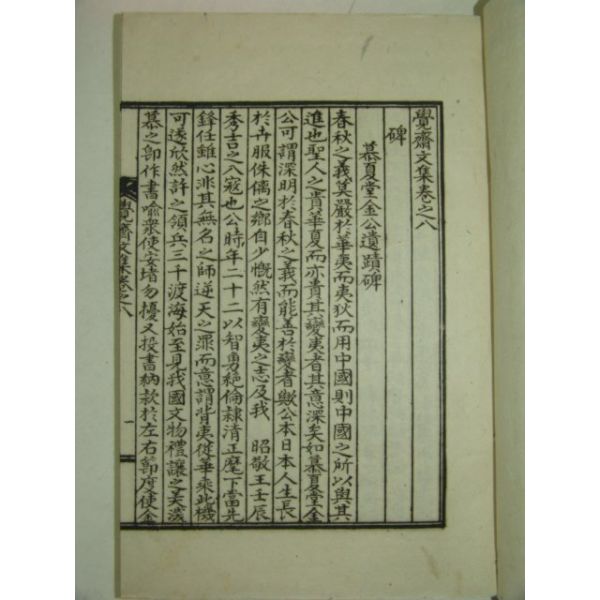 覺齋文集卷之八
碑
慕夏堂金公遺蹟碑
春秋之義莫嚴於華夷而夷狄而用中國則中國之所以與其
進也聖人之貴華夏而亦貴其變夷者其意深矣如慕夏堂金
公可謂深明於春秋之義而能善於變者歟公本日本人生長
於卉服侏儒之鄕自少慨然有變夷之志及我 昭敬王壬辰
秀吉之入寇也公時年二十二以智勇絶倫隷淸正麾下當先
鋒任雖心非其無名之師逆天之罪而意謂背夷從華乘此機
可遂欣然許之領兵三千渡海始至見我國文物禮讓之美洩
慕之卽作書喩衆使安堵勿擾又投書納款於左右節度使金
覺齋文集卷之八
一